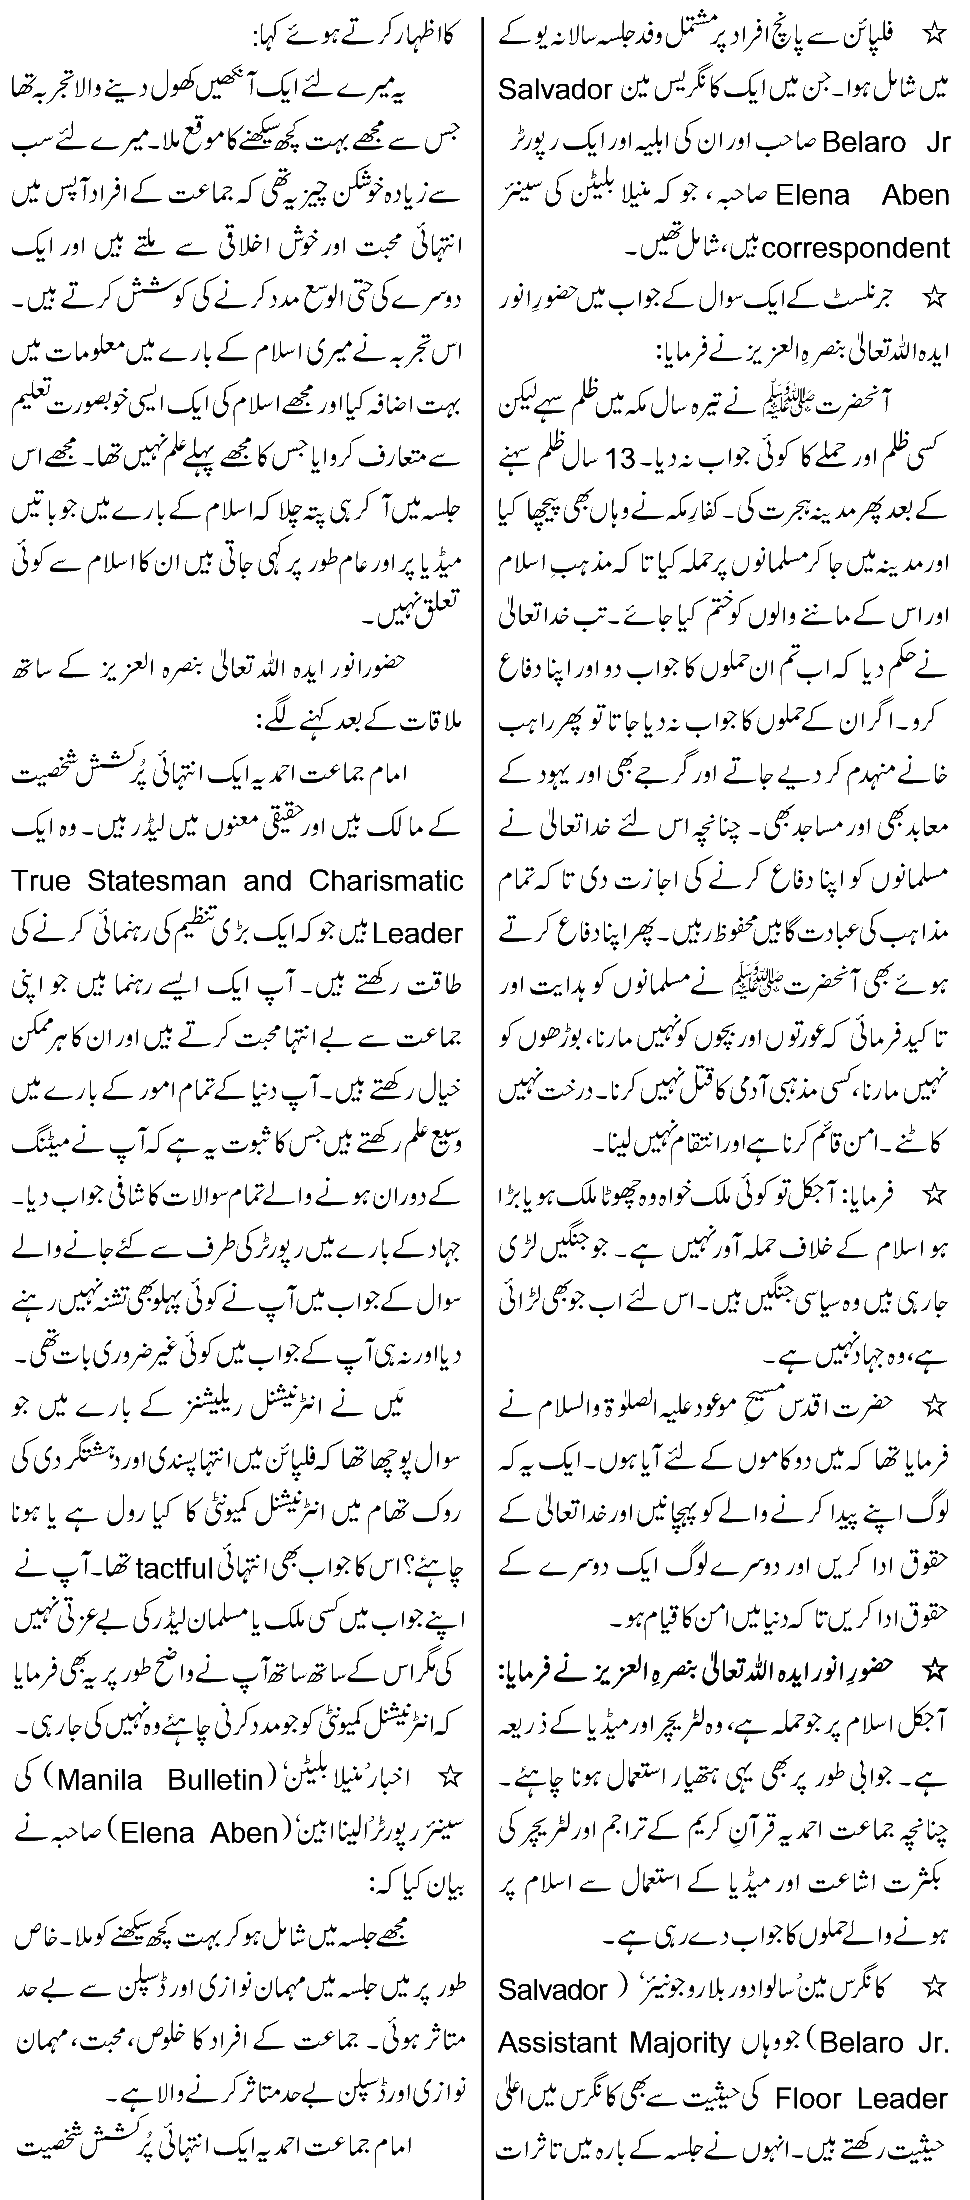 ☆ فلپائن سے پانچ افراد پر مشتمل وفد جلسہ سالانہ یو کے
میں شامل ہوا۔ جن میں ایک کانگریس مین Salvador
Belaro Jr صاحب اور ان کی اہلیہ اور ایک رپورٹر
Elena Aben صاحبہ، جو کہ منیلا بلیٹن کی سینئر
correspondent ہیں، شامل تھیں۔
☆ جرنلسٹ کے ایک سوال کے جواب میں حضورِ انور
ایدہ اللہ تعالیٰ بنصرہِ العزیز نے فرمایا:
آنحضرت ﷺ نے تیرہ سال مکہ میں ظلم سہے لیکن
کسی ظلم اور حملے کا کوئی جواب نہ دیا۔ 13 سال ظلم سہنے
کے بعد پھر مدینہ ہجرت کی۔ کفارِ مکہ نے وہاں بھی پیچھا کیا
اور مدینہ میں جا کر مسلمانوں پر حملہ کیا تا کہ مذہبِ اسلام
اور اس کے ماننے والوں کو ختم کیا جائے۔ تب خدا تعالیٰ
نے حکم دیا کہ اب تم ان حملوں کا جواب دو اور اپنا دفاع
کرو۔ اگر ان کے حملوں کا جواب نہ دیا جاتا تو پھر راہب
خانے منہدم کر دیے جاتے اور گرجے بھی اور یہود کے
معابد بھی اور مساجد بھی۔ چنانچہ اس لئے خدا تعالیٰ نے
مسلمانوں کو اپنا دفاع کرنے کی اجازت دی تا کہ تمام
مذاہب کی عبادت گاہیں محفوظ رہیں۔ پھر اپنا دفاع کرتے
ہوئے بھی آنحضرت ﷺ نے مسلمانوں کو ہدایت اور
تاکید فرمائی کہ عورتوں اور بچوں کو نہیں مارنا، بوڑھوں کو
نہیں مارنا، کسی مذہبی آدمی کا قتل نہیں کرنا۔ درخت نہیں
کاٹنے۔ امن قائم کرنا ہے اور انتقام نہیں لینا۔
☆ فرمایا: آجکل تو کوئی ملک خواہ وہ چھوٹا ملک ہو یا بڑا
ہو اسلام کے خلاف حملہ آور نہیں ہے۔ جو جنگیں لڑی
جا رہی ہیں وہ سیاسی جنگیں ہیں۔ اس لئے اب جو بھی لڑائی
ہے، وہ جہاد نہیں ہے۔
☆ حضرت اقدس مسیح موعود علیہ الصلوٰۃ والسلام نے
فرمایا تھا کہ میں دو کاموں کے لئے آیا ہوں۔ ایک یہ کہ
لوگ اپنے پیدا کرنے والے کو پہچانیں اور خدا تعالیٰ کے
حقوق ادا کریں اور دوسرے لوگ ایک دوسرے کے
حقوق ادا کریں تا کہ دنیا میں امن کا قیام ہو۔
☆ حضورِ انور ایدہ اللہ تعالیٰ بنصرہِ العزیز نے فرمایا:
آجکل اسلام پر جو حملہ ہے، وہ لٹریچر اور میڈیا کے ذریعہ
ہے۔ جوابی طور پر بھی یہی ہتھیار استعمال ہونا چاہئے۔
چنانچہ جماعت احمدیہ قرآنِ کریم کے تراجم اور لٹریچر کی
بکثرت اشاعت اور میڈیا کے استعمال سے اسلام پر
ہونے والے حملوں کا جواب دے رہی ہے۔
☆ کانگرس مین ’سالوادور بلارو جونیئر‘ (Salvador
Belaro Jr.) جو وہاں Assistant Majority
Floor Leader کی حیثیت سے بھی کانگرس میں اعلیٰ
حیثیت رکھتے ہیں۔ انہوں نے جلسہ کے بارہ میں تاثرات
کا اظہار کرتے ہوئے کہا:
یہ میرے لئے ایک آنکھیں کھول دینے والا تجربہ تھا
جس سے مجھے بہت کچھ سیکھنے کا موقع ملا۔ میرے لئے سب
سے زیادہ خوشکن چیز یہ تھی کہ جماعت کے افراد آپس میں
انتہائی محبت اور خوش اخلاقی سے ملتے ہیں اور ایک
دوسرے کی حتی الوسع مدد کرنے کی کوشش کرتے ہیں۔
اس تجربہ نے میری اسلام کے بارے میں معلومات میں
بہت اضافہ کیا اور مجھے اسلام کی ایک ایسی خوبصورت تعلیم
سے متعارف کروایا جس کا مجھے پہلے علم نہیں تھا۔ مجھے اس
جلسہ میں آ کر ہی پتہ چلا کہ اسلام کے بارے میں جو باتیں
میڈیا پر اور عام طور پر کہی جاتی ہیں ان کا اسلام سے کوئی
تعلق نہیں۔
حضور انور ایدہ اللہ تعالیٰ بنصرہ العزیز کے ساتھ
ملاقات کے بعد کہنے لگے:
امام جماعت احمدیہ ایک انتہائی پُرکشش شخصیت
کے مالک ہیں اور حقیقی معنوں میں لیڈر ہیں۔ وہ ایک
True Statesman and Charismatic
Leader ہیں جو کہ ایک بڑی تنظیم کی رہنمائی کرنے کی
طاقت رکھتے ہیں۔ آپ ایک ایسے رہنما ہیں جو اپنی
جماعت سے بے انتہا محبت کرتے ہیں اور ان کا ہر ممکن
خیال رکھتے ہیں۔ آپ دنیا کے تمام امور کے بارے میں
وسیع علم رکھتے ہیں جس کا ثبوت یہ ہے کہ آپ نے میٹنگ
کے دوران ہونے والے تمام سوالات کا شافی جواب دیا۔
جہاد کے بارے میں رپورٹر کی طرف سے کئے جانے والے
سوال کے جواب میں آپ نے کوئی پہلو بھی تشنہ نہیں رہنے
دیا اور نہ ہی آپ کے جواب میں کوئی غیر ضروری بات تھی۔
مَیں نے انٹرنیشنل ریلیشنز کے بارے میں جو
سوال پوچھا تھا کہ فلپائن میں انتہا پسندی اور دہشتگردی کی
روک تھام میں انٹرنیشنل کمیونٹی کا کیا رول ہے یا ہونا
چاہئے؟ اس کا جواب بھی انتہائی tactful تھا۔ آپ نے
اپنے جواب میں کسی ملک یا مسلمان لیڈر کی بے عزتی نہیں
کی مگر اس کے ساتھ ساتھ آپ نے واضح طور پر یہ بھی فرمایا
کہ انٹرنیشنل کمیونٹی کو جو مدد کرنی چاہئے وہ نہیں کی جا رہی۔
☆ اخبار ’منیلا بلیٹن‘ (Manila Bulletin) کی
سینئر رپورٹر ’الینا ابین‘ (Elena Aben) صاحبہ نے
بیان کیا کہ:
مجھے جلسہ میں شامل ہو کر بہت کچھ سیکھنے کو ملا۔ خاص
طور پر میں جلسہ میں مہمان نوازی اور ڈسپلن سے بے حد
متاثر ہوئی۔ جماعت کے افراد کا خلوص، محبت، مہمان
نوازی اور ڈسپلن بے حد متاثر کرنے والا ہے۔
امام جماعت احمدیہ ایک انتہائی پُرکشش شخصیت